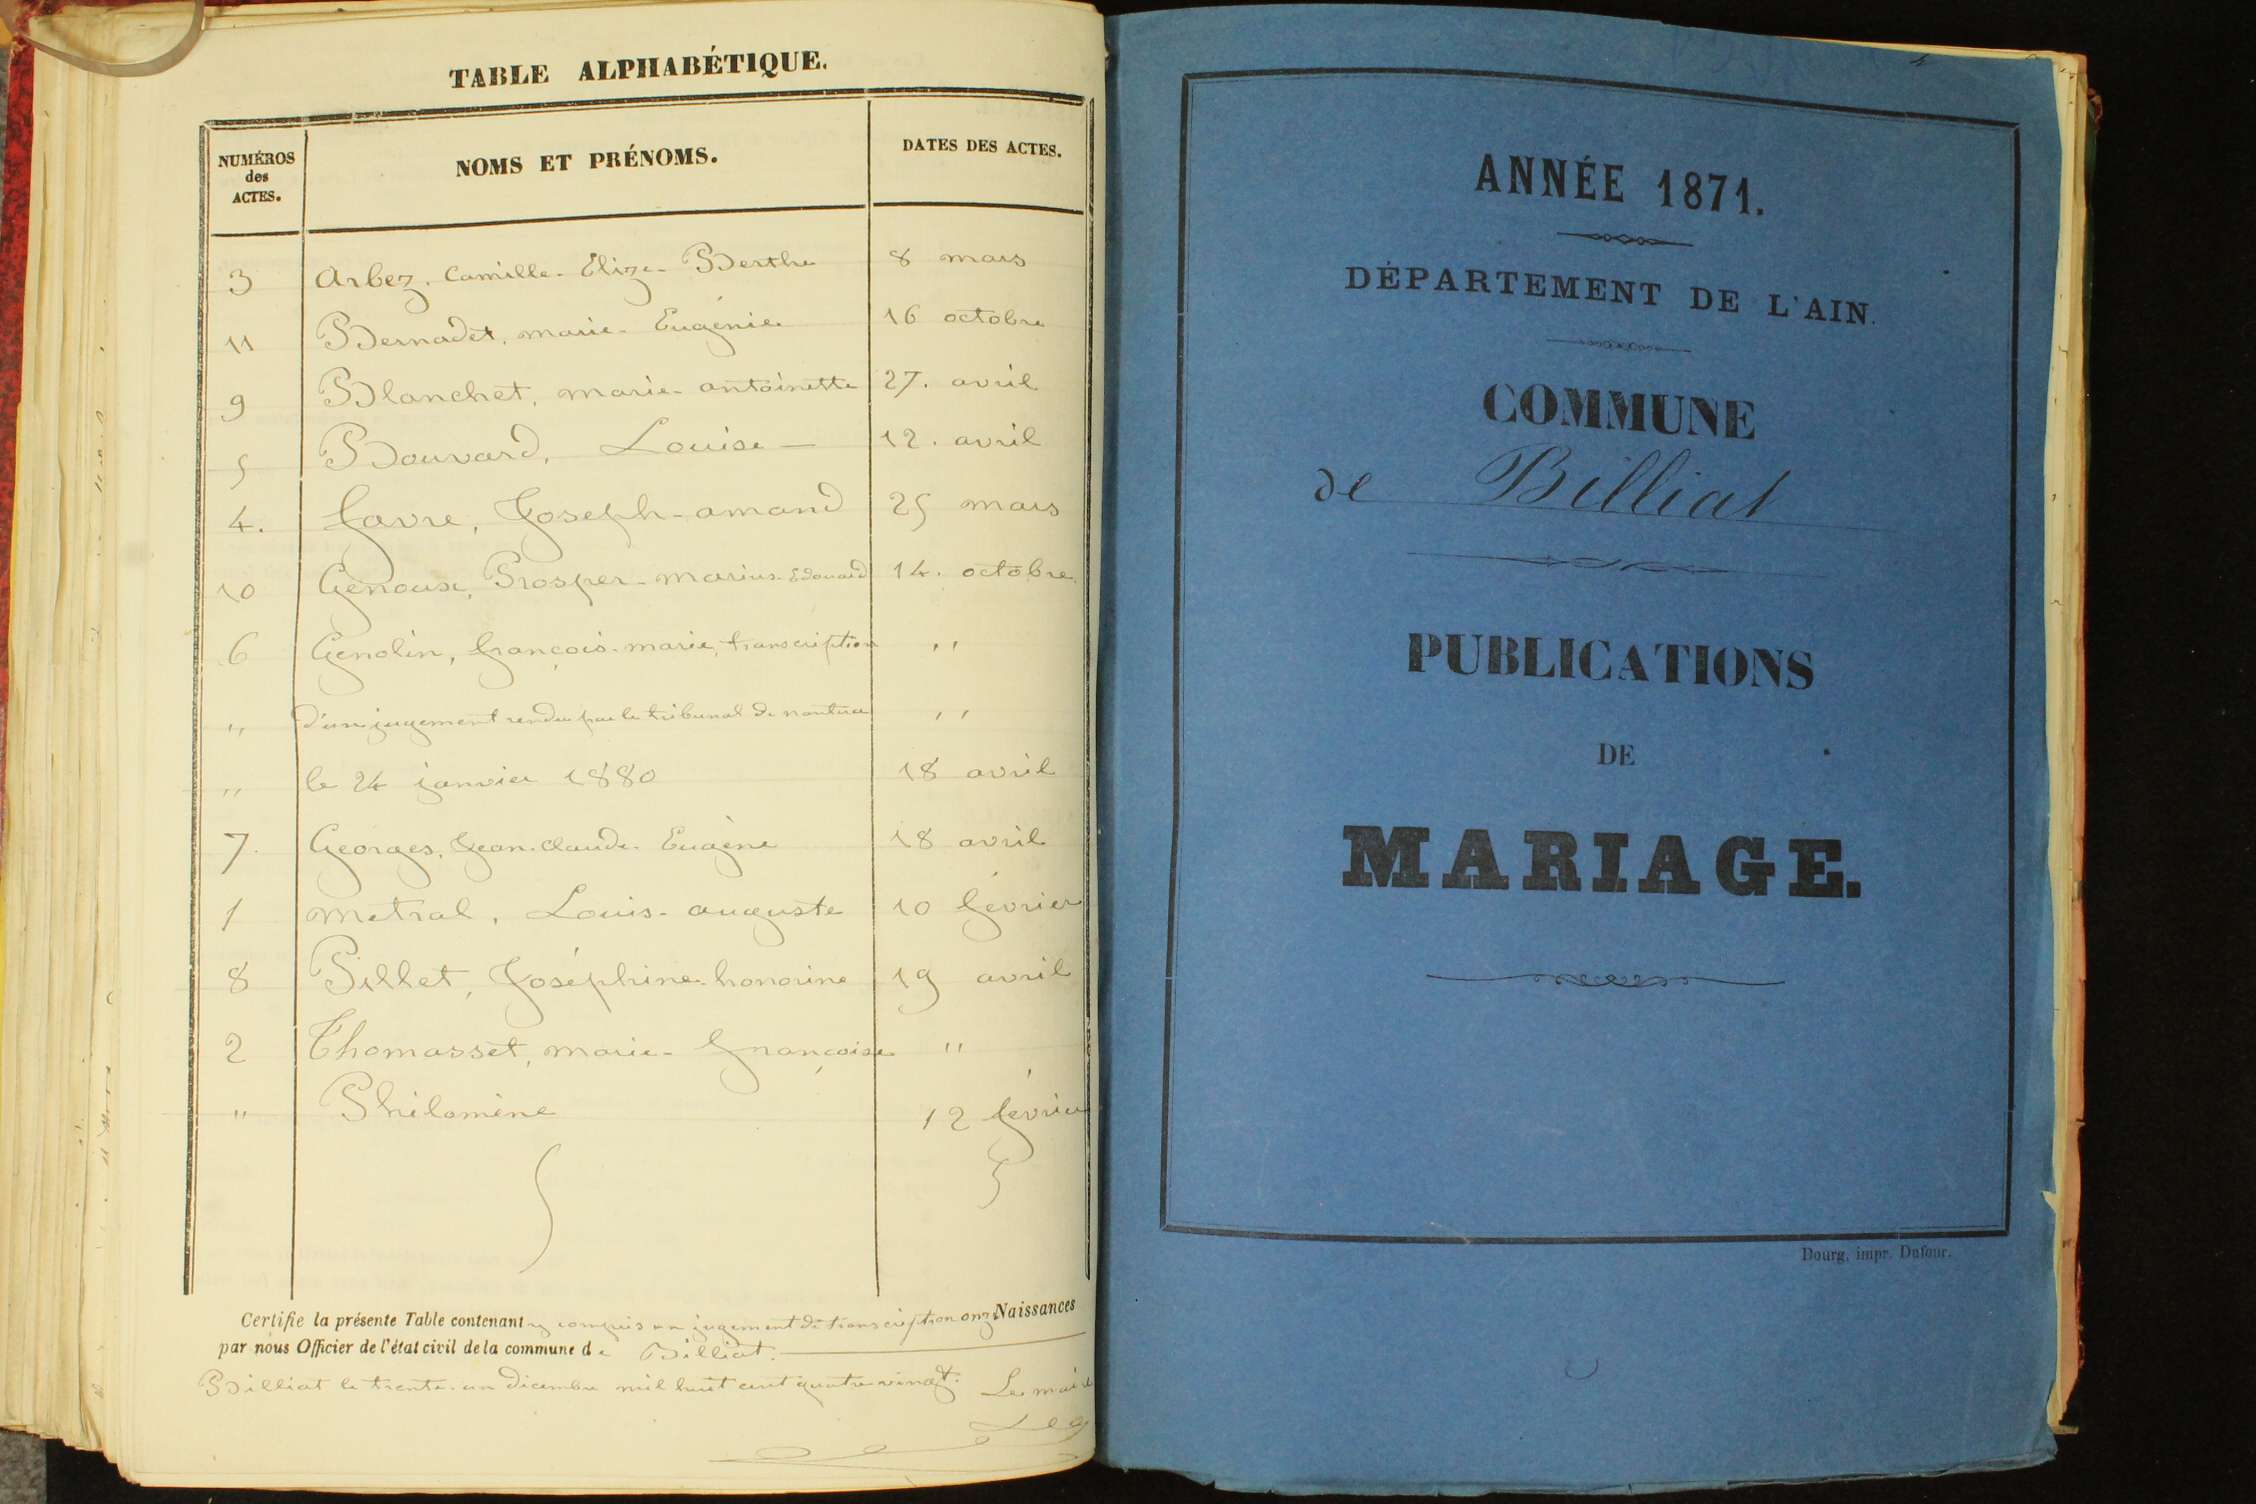 TABLE ALPHABÉTIQUE.
NUMÉROS
des
ACTES.
NOMS ET PRÉNOMS.
DATES DES ACTES.
3 Arbez. Camille. Élize. Berthe 8 mars
11 Bernadet, marie. Eugénie 16 octobre
9 Blanchet, marie. antoinette 27. avril
5 Bouvard, Louise — 12. avril
4. favre, Joseph-amand 25 mars
10 Genoux, Prosper. marius. Edouard 14. octobre.
6 Genolin, françois-marie, transcription ,,
,, d'un jugement rendu par le tribunal de nantua ,,
,, le 24 janvier 1880 18 avril
7. Georges, Jean. claude. Eugène 18 avril
1 metral, Louis. auguste 10 février
8 Pillet, Joséphine honorine 19 avril
2 Thomasset, marie. françoise "
" Philomène 12 février
Certifie la présente Table contenant y compris un jugement de transcription onze Naissances
par nous Officier de l'état civil de la commune de Billiat.
Billiat le trente. un Décembre mil huit cent quatre vingt. Le maire
ANNÉE 1871.
DÉPARTEMENT DE L'AIN.
COMMUNE
de Billiat
PUBLICATIONS
DE
MARIAGE.
Bourg, impr. Dufour.